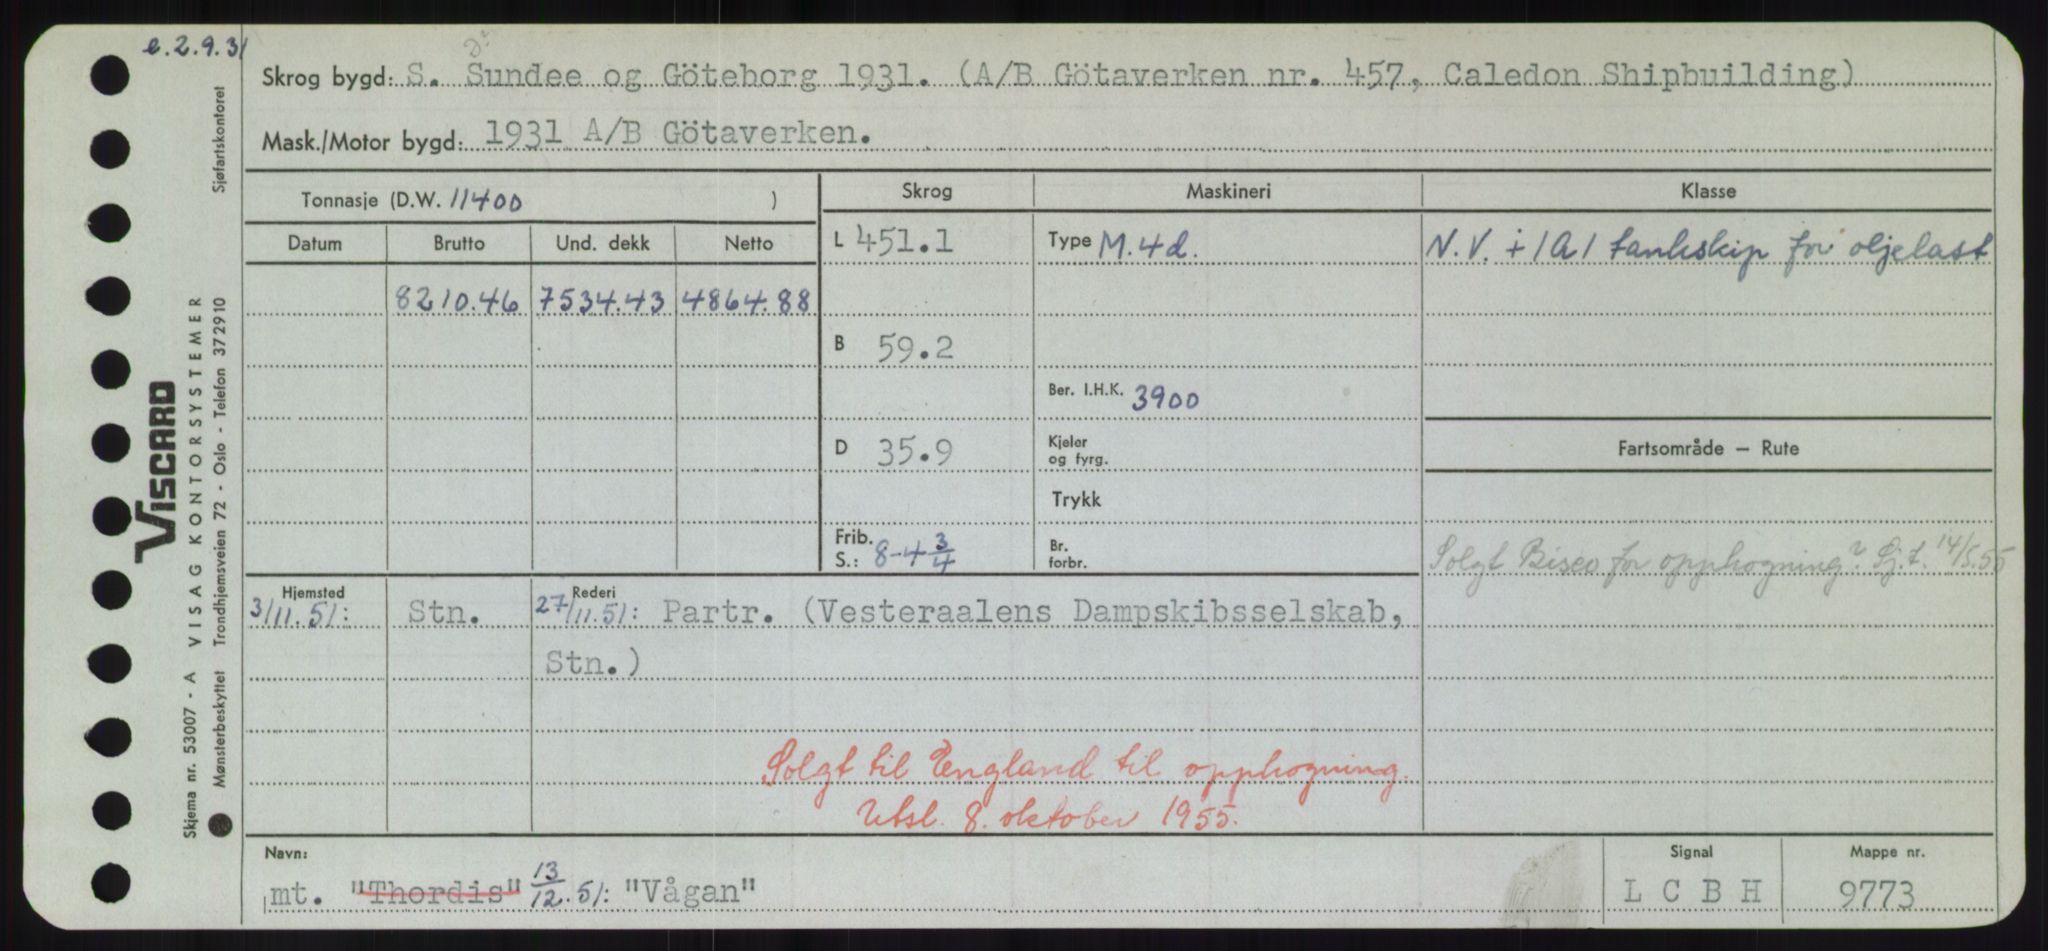 e.2.9.31
Skrog bygd: S. Sundee og Göteborg 1931. (A/B Götaverken nr. 457, Caledon Shipbuilding)
Mask./Motor bygd: 1931 A/B Götaverken.
Tonnasje (D.W. 11400 )
Skrog Maskineri Klasse
Datum Brutto Und. dekk Netto
L 451.1 Type M.4d. N.V. + 1A1 tankskip for oljelast
8210.46 7534.43 4864.88
B 59.2
Ber. I.H.K. 3900
D 35.9 Kjeler og fyrg. Fartsområde — Rute
Trykk
Frib. S.: 8-4 3/4 Br. forbr.
Solgt Bisco for opphogning? Sj.t. 14/5.55
Hjemsted Rederi
3/11.51: Stn. 27/11.51: Partr. (Vesteraalens Dampskibsselskab,
Stn.)
Solgt til England til opphogning.
Utsl. 8. oktober 1955.
Navn: Signal Mappe nr.
mt. "Thordis" 13/12.51: "Vågan" L C B H 9773
VISCARD
Skjema nr. 53007 - A VISAG KONTORSYSTEMER
Mønsterbeskyttet Trondhjemsveien 72 - Oslo - Telefon 372910 Sjøfartskontoret